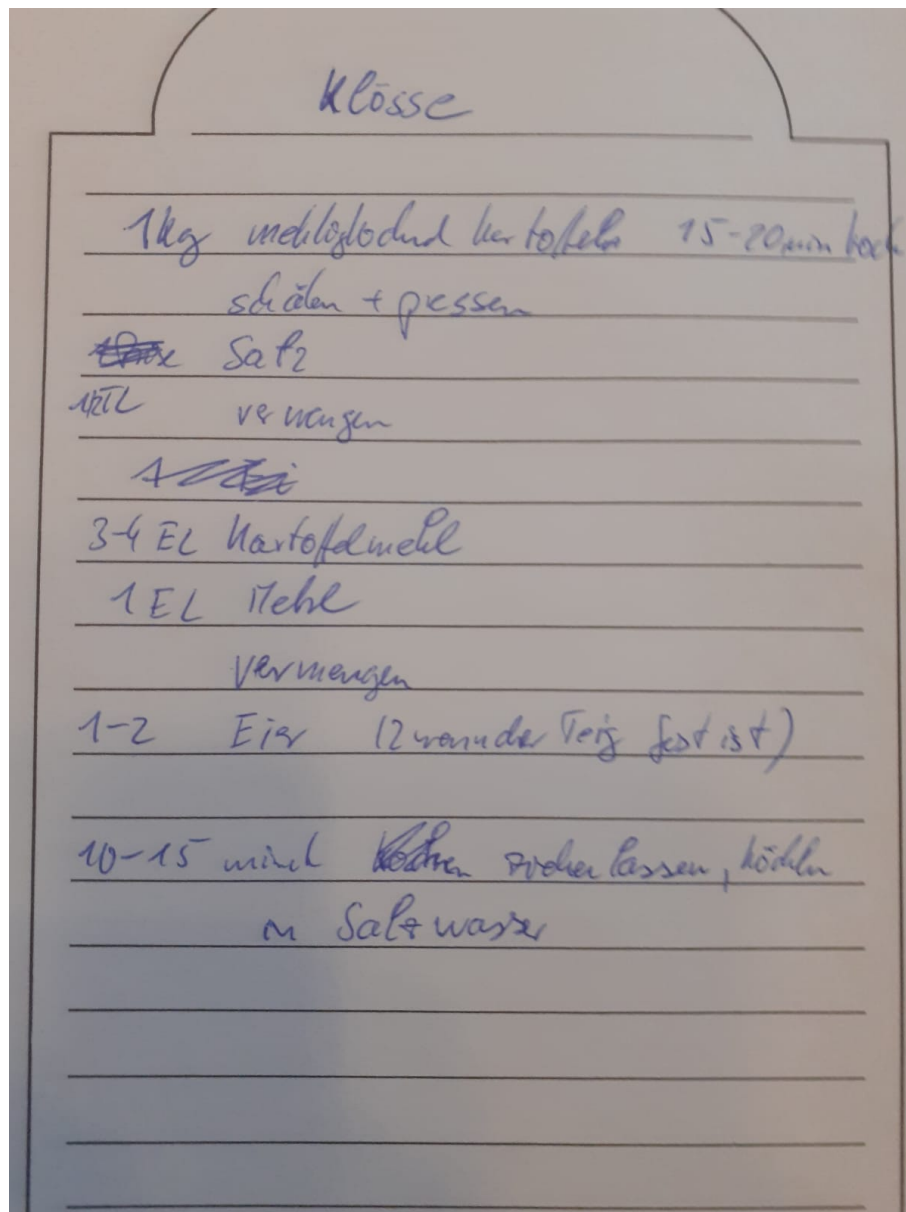 Klösse
1kg Kartoffeln 15-20min koch
schälen + pressen
Salz
1/2TL vermengen
3-4 EL Kartoffelmehl
1 EL Mehl
vermengen
1-2 Eier (2 wenn der Teig fest ist)
10-15 lassen, köcheln
in Salzwasser